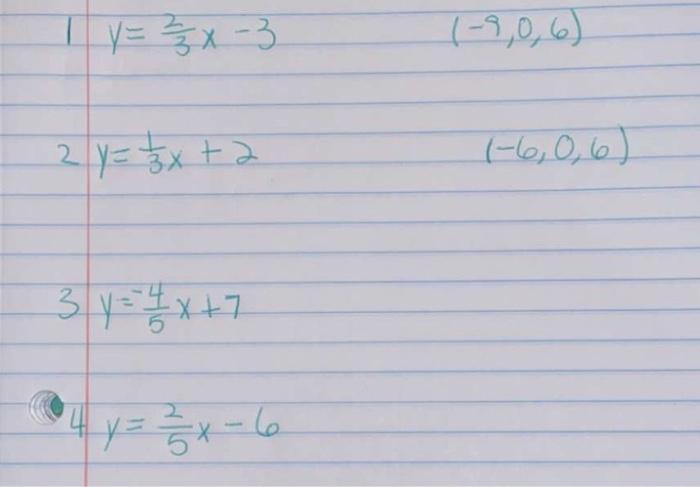 1 y = 2/3 x - 3 (-9, 0, 6)
2 y = 1/3 x + 2 (-6, 0, 6)
3 y = -4/5 x + 7
4 y = 2/5 x - 6